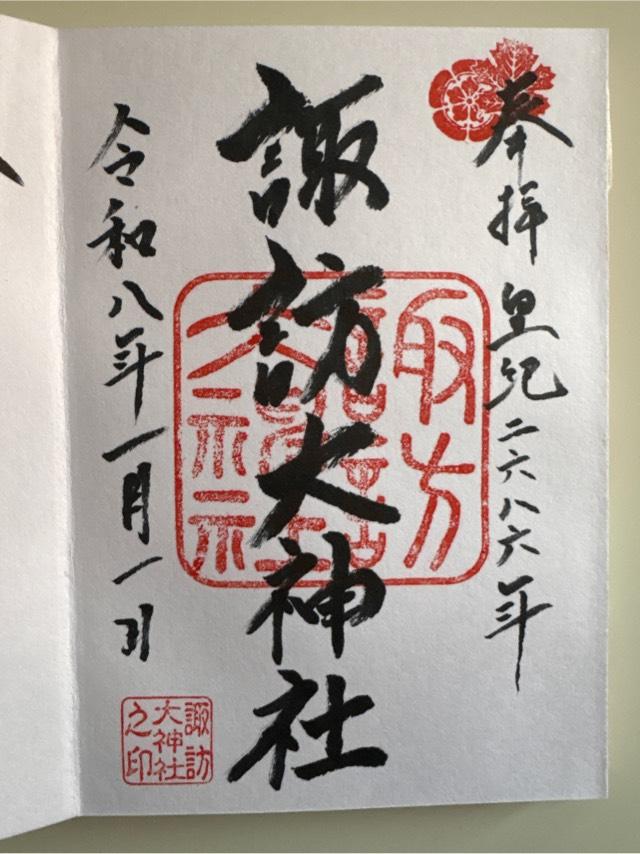 奉拝 皇紀二六八六年
諏訪大神社
令和八年一月一日
諏訪
大神社
之印